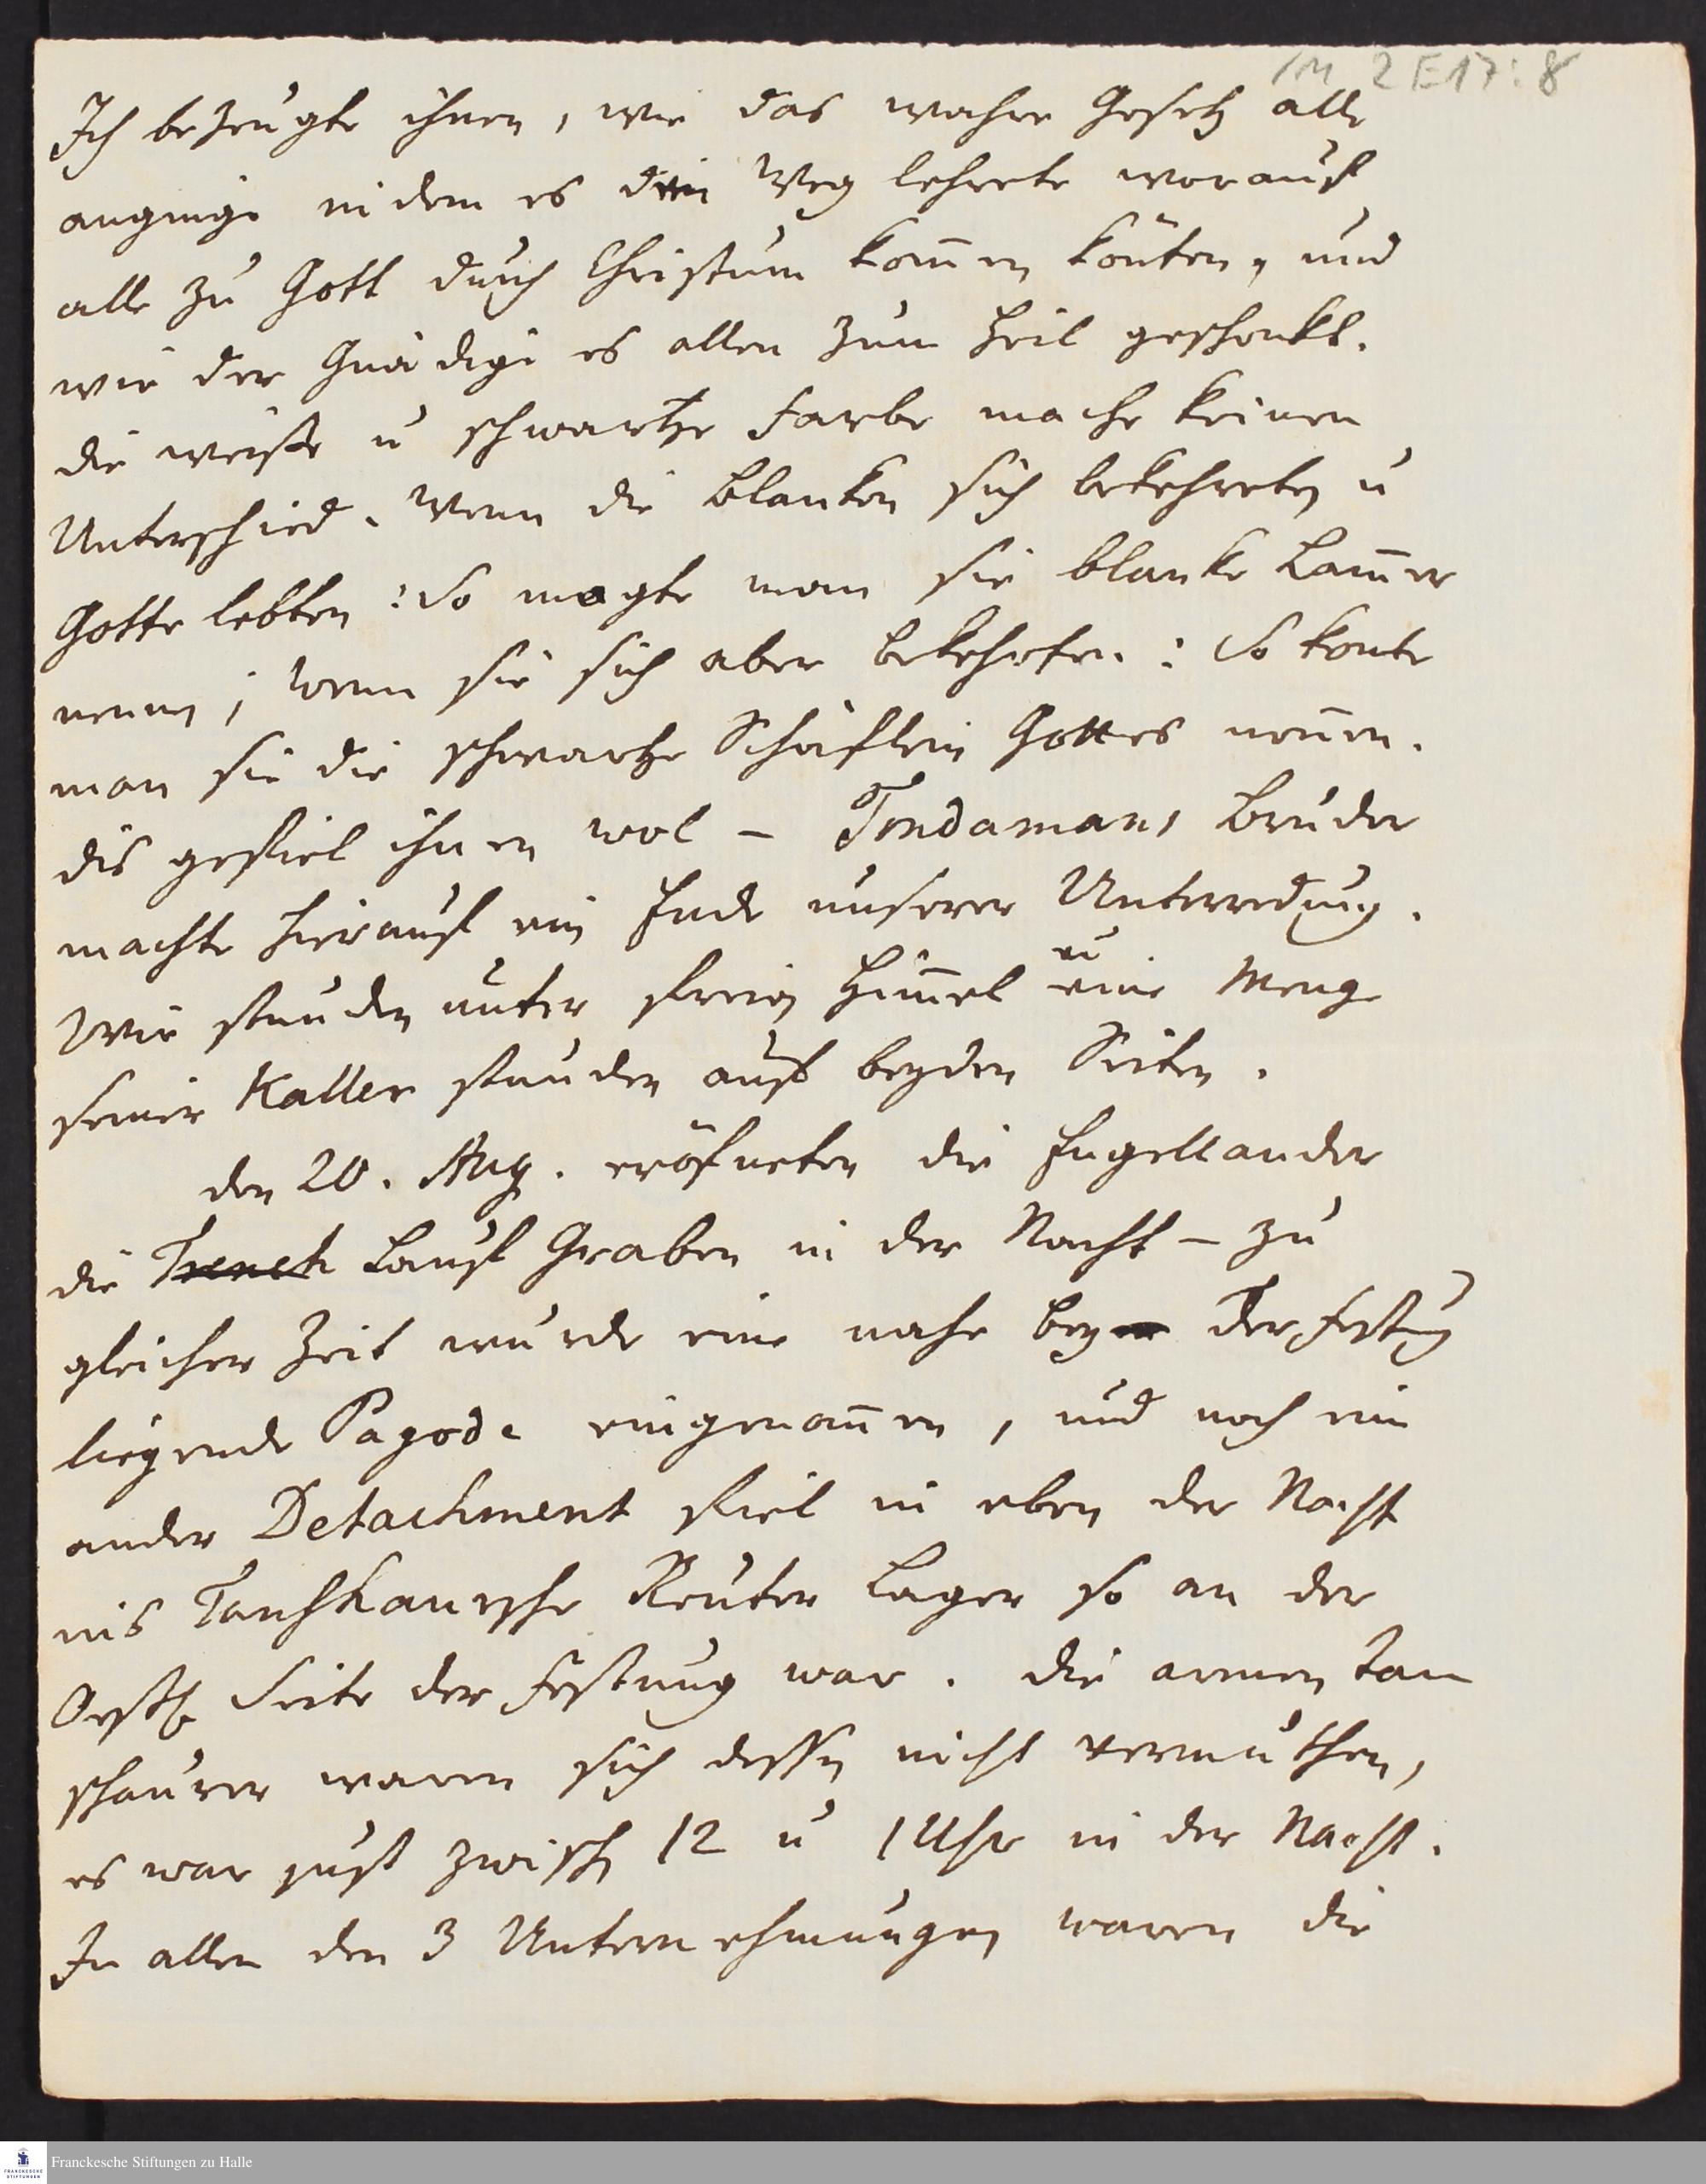 1M 2 E 17 : 8
Ich bezeugte ihnen, wie das wahre Gesetz alle
anginge in dem es den Weg lehrete worauf
alle zu Gott durch Christum kom̄en kön̄ten, und
wie der Gnädige es allen zum Heil geschenkt.
die weiße u schwartze Farbe mache keinen
Unterschied. Wenn die Blanken sich bekehreten u
Gotte lebten: So mogte man sie blanke Lam̄er
nennen; wenn sie sich aber bekehrten: So konte
man sie die schwartze Schäflein Gottes nen̄en.
dis gefiel ihnen wol – Tondamans Bruder
machte hierauf ein Ende unserer Unterredung.
Wir stunden unter freien Him̄el u eine Menge
seiner Kaller stunden auf beyden Seiten.
den 20. Aug. eröfneten die Engellander
die Trench Lauf Graben in der Nacht – zu
gleicher Zeit wurde eine nahe bey der Festung
liegende Pagode eingenom̄en, und noch ein
ander Detachment fiel in eben der Nacht
ins Tanshaursche Reuter Lager so an der
Oestl. Seite der Festung war. die armen Tan
schaurer waren sich dessen nicht vermuthen,
es war just zwischen 12 u 1 Uhr in der Nacht.
In allen den 3 Unternehmungen waren die
Franckesche Stiftungen zu Halle
FRANCKESCHE
STIFTUNGEN